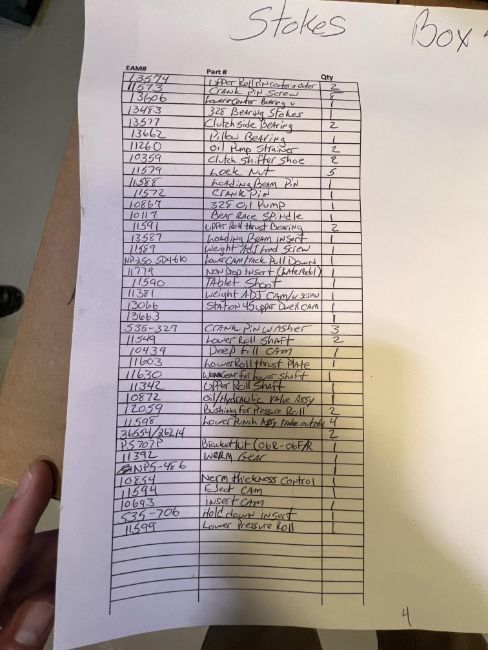 Stokes Box
EAM# Part # Qty
13574 Upper Roll Pin 2
11573 Crank Pin Screw 8
13606 Lower Center Bearing 1
13483 328 Bearing Stokes 1
13577 Clutch Side Bearing 2
13662 Pillow Bearing 1
11260 Oil Pump Strainer 2
10359 Clutch Shifter Shoe 2
11579 Lock Nut 5
11588 Loading Beam Pin 1
11572 Crank Pin 1
10867 328 Oil Pump 1
10117 Bear Race Spindle 1
11591 Upper Roll thrust Bearing 2
13587 Loading Beam insert 1
11589 Weight Adj Load Screw 1
Lower Cam track Pull Down 1
11779 Non Drop insert 1
11590 Tablet Shoot 1
11381 Weight ADJ CAM/w screw 1
13066 Station 45 upper Dwell CAM 1
13663 1
536-327 Crank Pin Washer 3
11549 Lower Roll Shaft 2
10439 Deep Fill CAM 1
11603 Lower Roll thrust Plate 1
11630 Worm Gear for Lower Shaft 1
11342 Upper Roll Shaft 1
10872 Oil/Hydraulic Valve Assy 1
12059 Bushing for Pressure Roll 2
11598 Lower Punch Assy take outs 4
36554/36214 2
PS702P Bracket Kit (06R-06F/R 1
11392 Worm Gear 1
NPS-486 1
10854 Nerm thickness Control 1
11594 Eject CAM 1
10693 insert CAM 1
535-706 Hold down insert 1
11599 Lower Pressure Roll 1
4